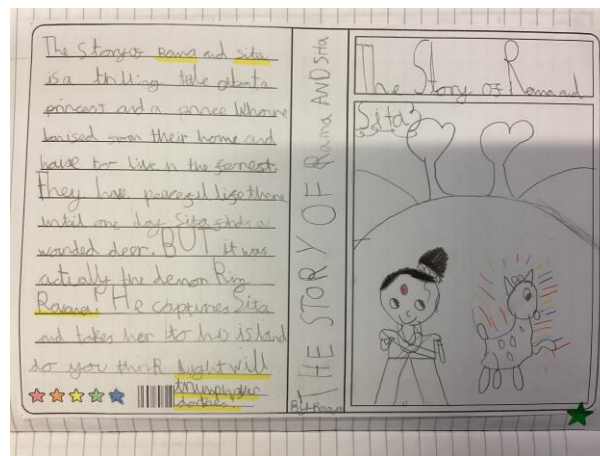 The Story of Rama and Sita
is a thrilling tale about a
princess and a prince who are
banised from their home and
have to live in the forrest.
They have peacegul lige there
until one day Sita finds a
wonded deer. BUT it was
actually the demon King
Ravana! He captures Sita
and takes her to his island
do you think light will
triumph over
darknes.
THE STORY OF Rama AND Sita
By:
The Story of Rama and
Sita